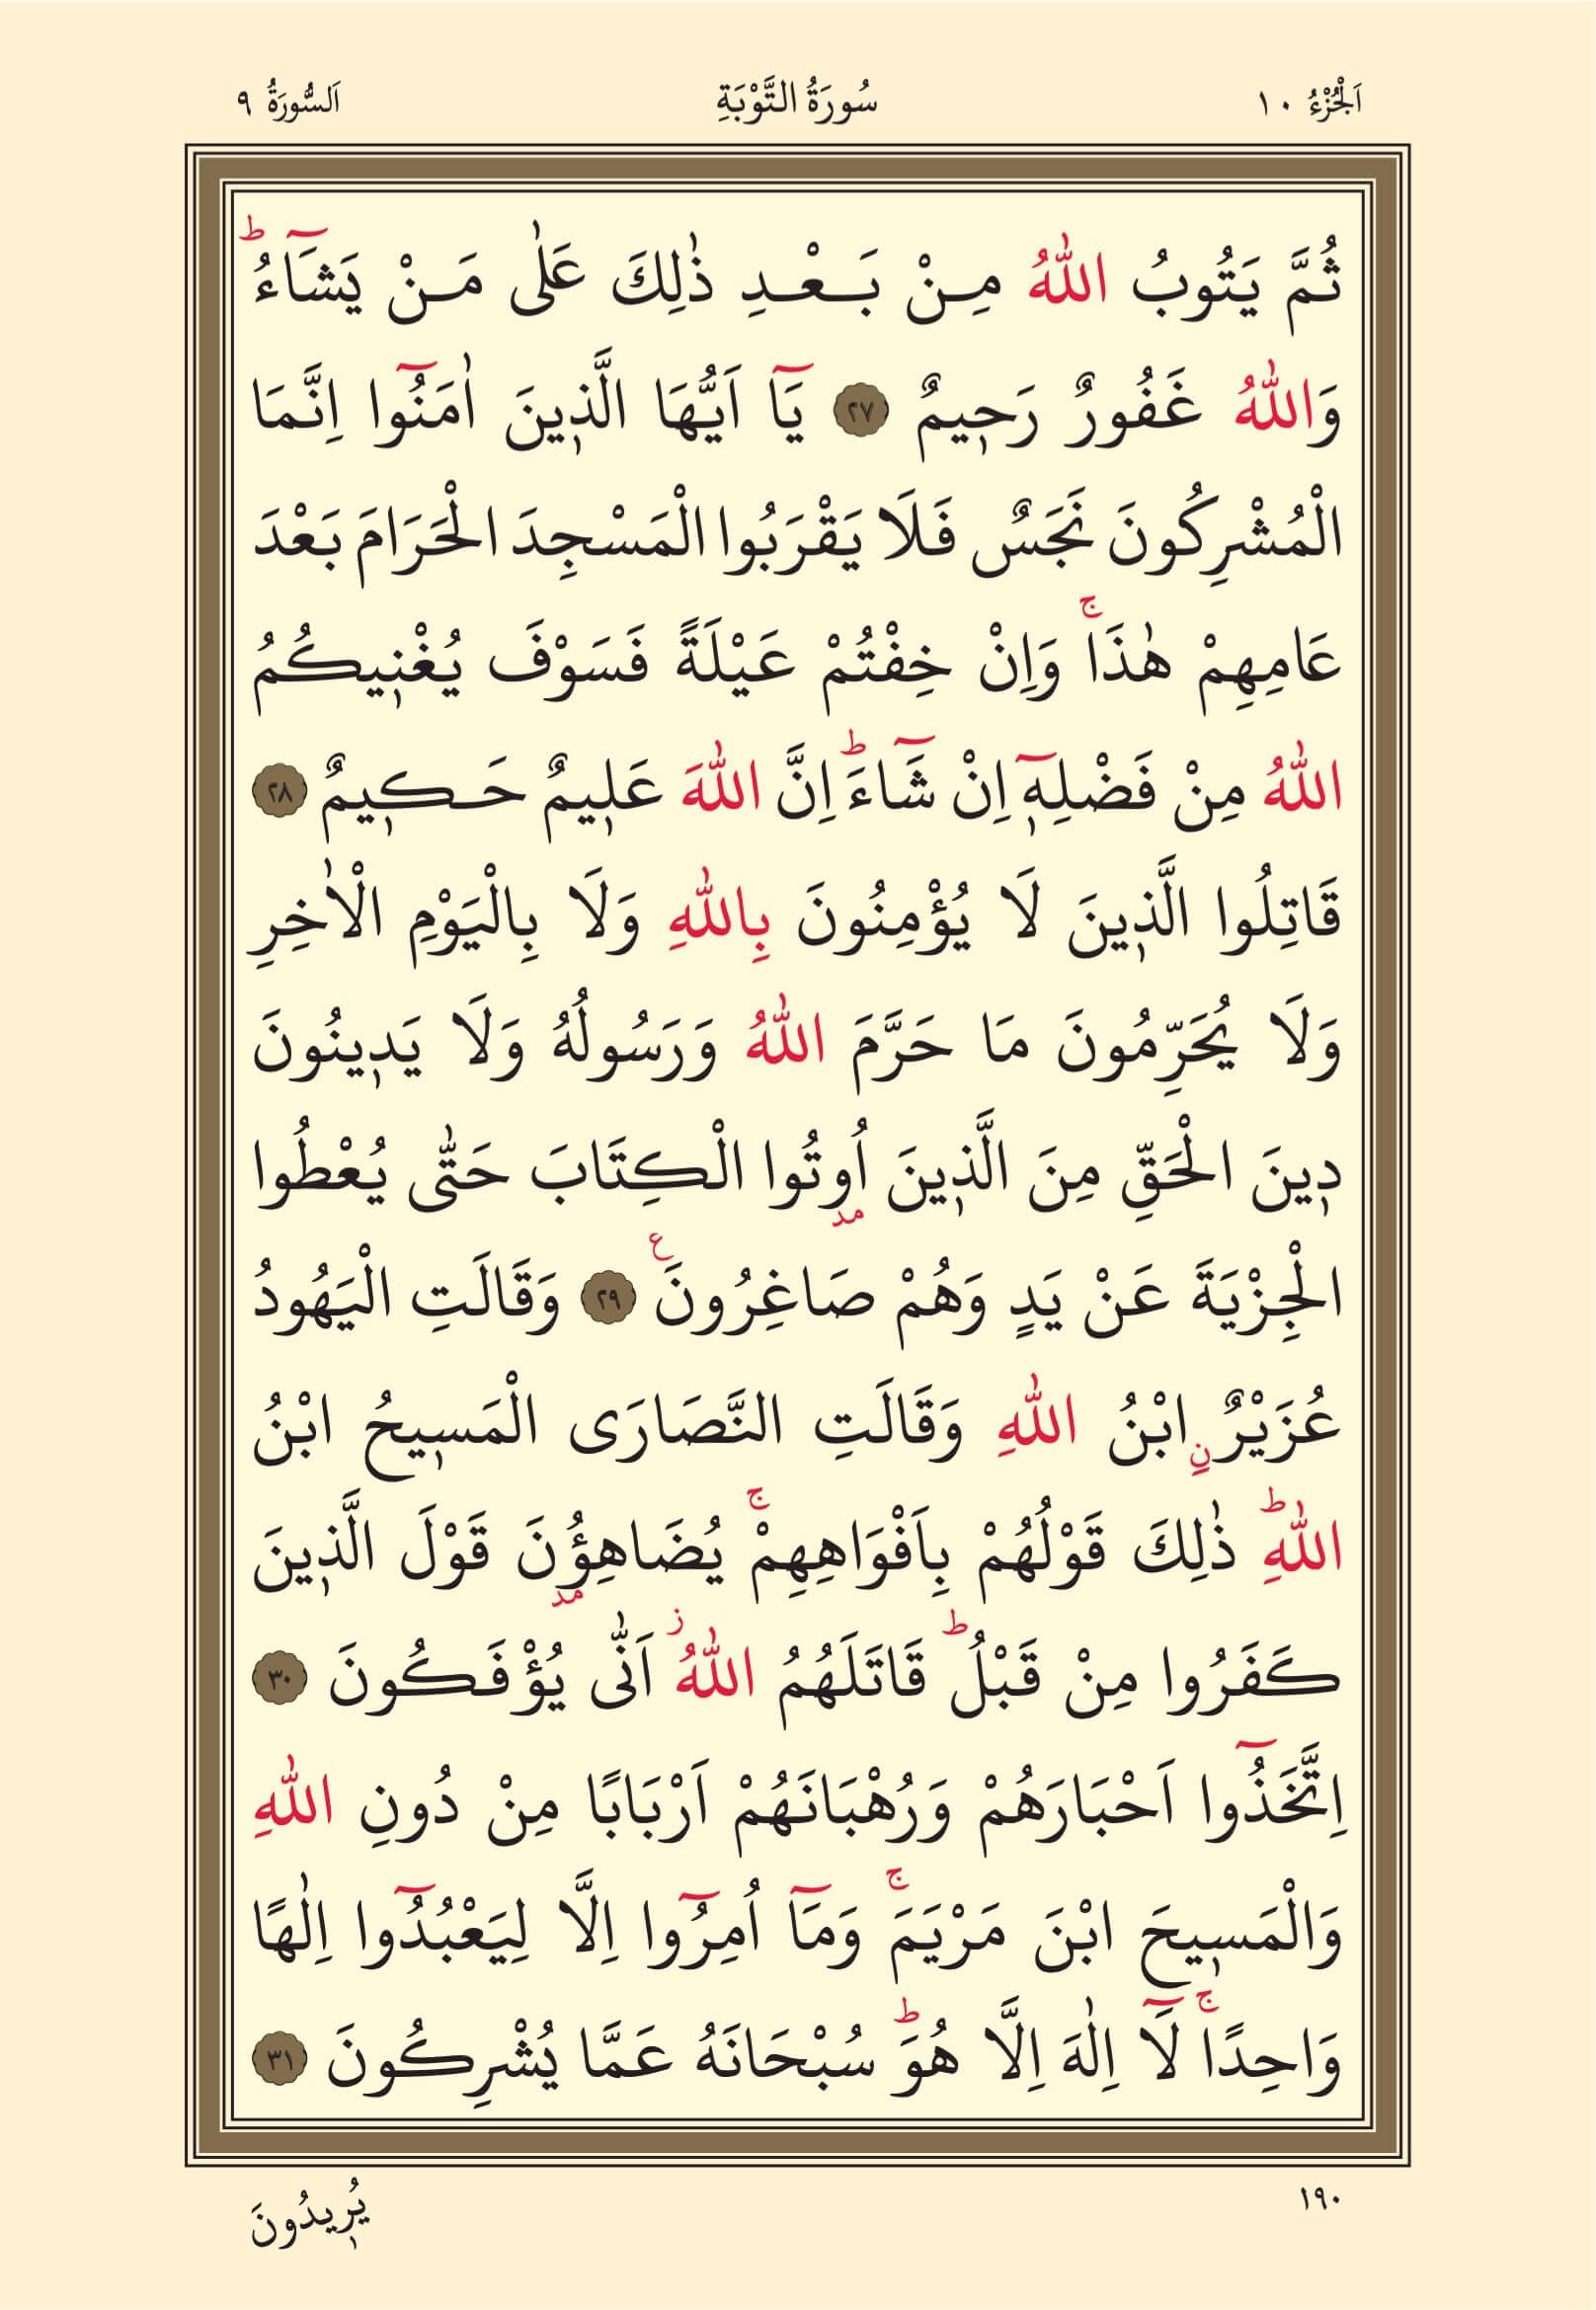 اَلْجُزْءُ ١٠
سُورَةُ التَّوْبَةِ
اَلسُّورَةُ ٩
ثُمَّ يَتُوبُ اللّٰهُ مِنْ بَعْدِ ذٰلِكَ عَلٰى مَنْ يَشَٓاءُۜ
وَاللّٰهُ غَفُورٌ رَح۪يمٌ ٢٧ يَٓا اَيُّهَا الَّذ۪ينَ اٰمَنُٓوا اِنَّمَا
الْمُشْرِكُونَ نَجَسٌ فَلَا يَقْرَبُوا الْمَسْجِدَ الْحَرَامَ بَعْدَ
عَامِهِمْ هٰذَاۚ وَاِنْ خِفْتُمْ عَيْلَةً فَسَوْفَ يُغْن۪يكُمُ
اللّٰهُ مِنْ فَضْلِه۪ٓ اِنْ شَٓاءَۜ اِنَّ اللّٰهَ عَل۪يمٌ حَك۪يمٌ ٢٨
قَاتِلُوا الَّذ۪ينَ لَا يُؤْمِنُونَ بِاللّٰهِ وَلَا بِالْيَوْمِ الْاٰخِرِ
وَلَا يُحَرِّمُونَ مَا حَرَّمَ اللّٰهُ وَرَسُولُهُ وَلَا يَد۪ينُونَ
د۪ينَ الْحَقِّ مِنَ الَّذ۪ينَ اُو۫تُوا الْكِتَابَ حَتّٰى يُعْطُوا
الْجِزْيَةَ عَنْ يَدٍ وَهُمْ صَاغِرُونَ۟ ٢٩ وَقَالَتِ الْيَهُودُ
عُزَيْرٌۨ ابْنُ اللّٰهِ وَقَالَتِ النَّصَارَى الْمَس۪يحُ ابْنُ
اللّٰهِۜ ذٰلِكَ قَوْلُهُمْ بِاَفْوَاهِهِمْۚ يُضَاهِؤُ۫نَ قَوْلَ الَّذ۪ينَ
كَفَرُوا مِنْ قَبْلُۜ قَاتَلَهُمُ اللّٰهُۘ اَنّٰى يُؤْفَكُونَ ٣٠
اِتَّخَذُٓوا اَحْبَارَهُمْ وَرُهْبَانَهُمْ اَرْبَابًا مِنْ دُونِ اللّٰهِ
وَالْمَس۪يحَ ابْنَ مَرْيَمَۚ وَمَٓا اُمِرُٓوا اِلَّا لِيَعْبُدُٓوا اِلٰهًا
وَاحِدًاۚ لَٓا اِلٰهَ اِلَّا هُوَۜ سُبْحَانَهُ عَمَّا يُشْرِكُونَ ٣١
١٩٠
يُر۪يدُونَ